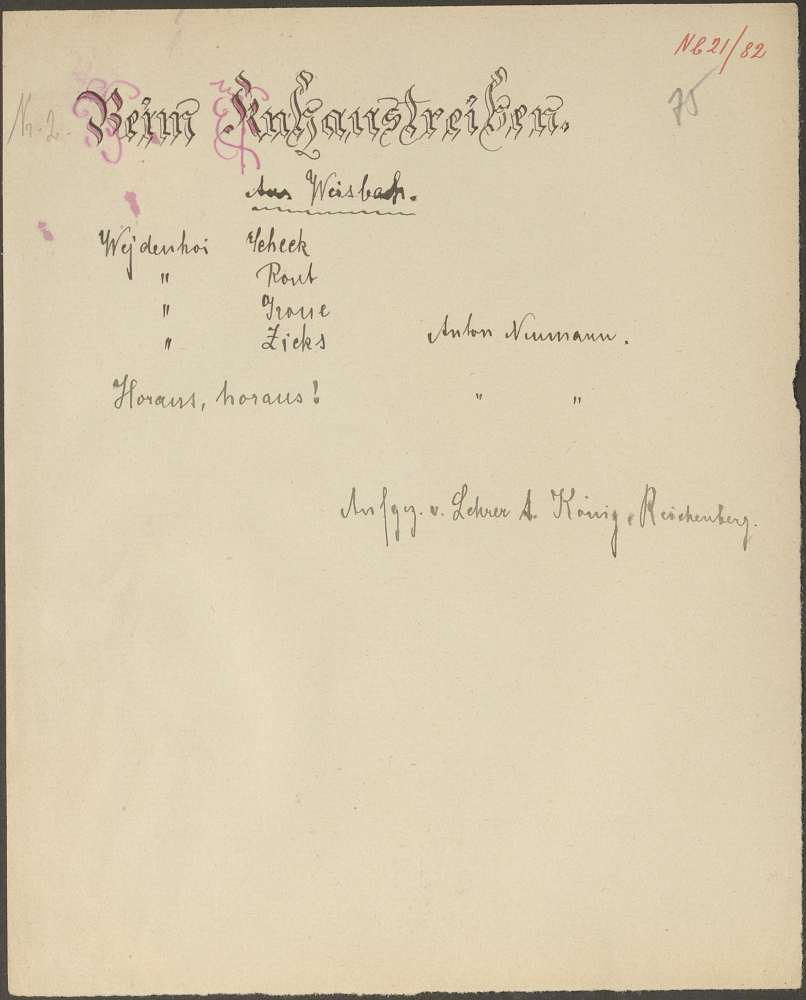 Nb 21/82
75
Nr. 2. Beim Kuhaustreiben.
Aus Weisbach.
Wejdenhoi Scheck
" Rout
" Grone
" Zicks Anton Neumann.
Horaus, horaus! " "
Aufgez. v. Lehrer A. König, Reichenberg.